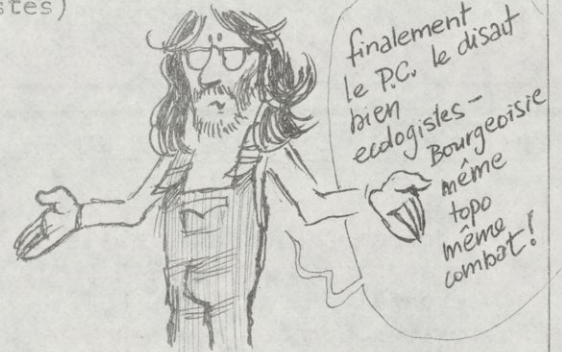 stes)
finalement
le P.C. le disait
bien
ecologistes-
Bourgeoisie
même
topo
même
combat!